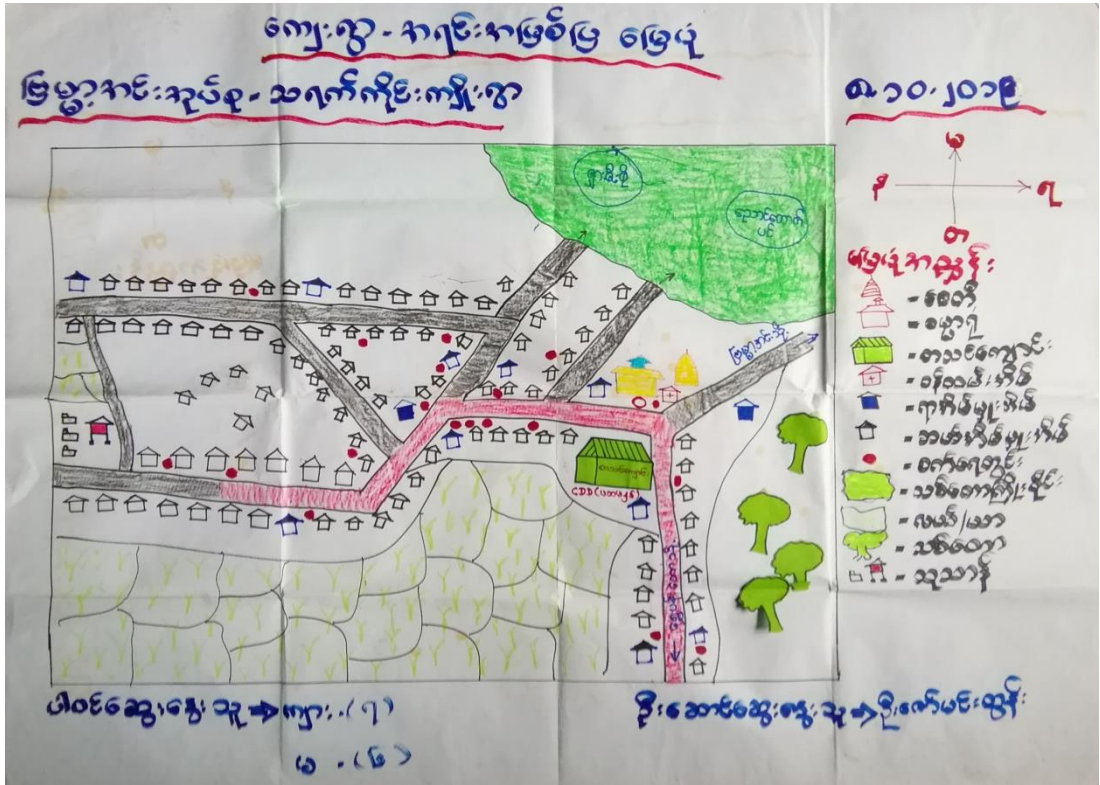 ကျေးရွာ - အရင်းအမြစ်ပြ မြေပုံ
မြယ္ဟာအင်းအုပ်စု - သရက်ကိုင်းကျိုးရွာ
၈.၁၀.၂၀၁၉
မ
န
ရ
တ
မြေပုံအညွှန်း
= စေတီ
= ဓမ္မာရုံ
= စာသင်ကျောင်း
= ဝန်ထမ်းအိမ်
= ရာအိမ်မှူးအိမ်
= ဆယ်အိမ်မှူးအိမ်
= စက်ရေတွင်း
= သစ်တောကြိုးဝိုင်း
= လယ်/ယာ
= သစ်တော
= သုသာန်
ရှားမီးစို
ညောင်ထောက်ပင်
စာသင်ကျောင်း
CDD (ပထမနှစ်)
ပါဝင်ဆွေးနွေးသူ ⇒ ကျား - (၅)
မ - (၆)
ဦးဆောင်ဆွေးနွေးသူ ⇒ ဦးဇော်မင်းထွန်း